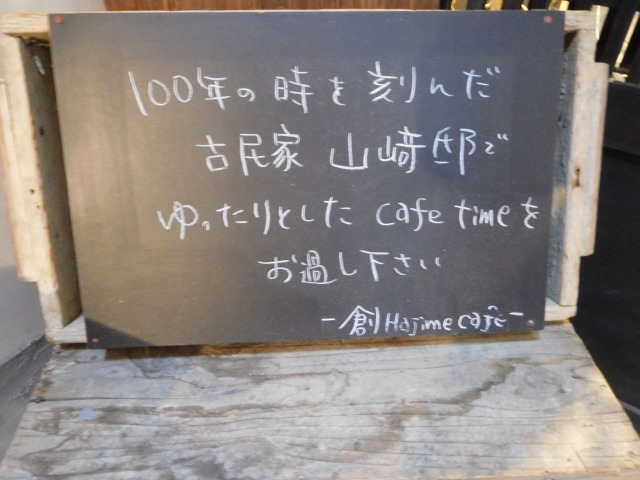 100年の時を刻んだ
古民家 山﨑邸で
ゆったりとした cafe timeを
お過し下さい
-創 Hajime cafe-